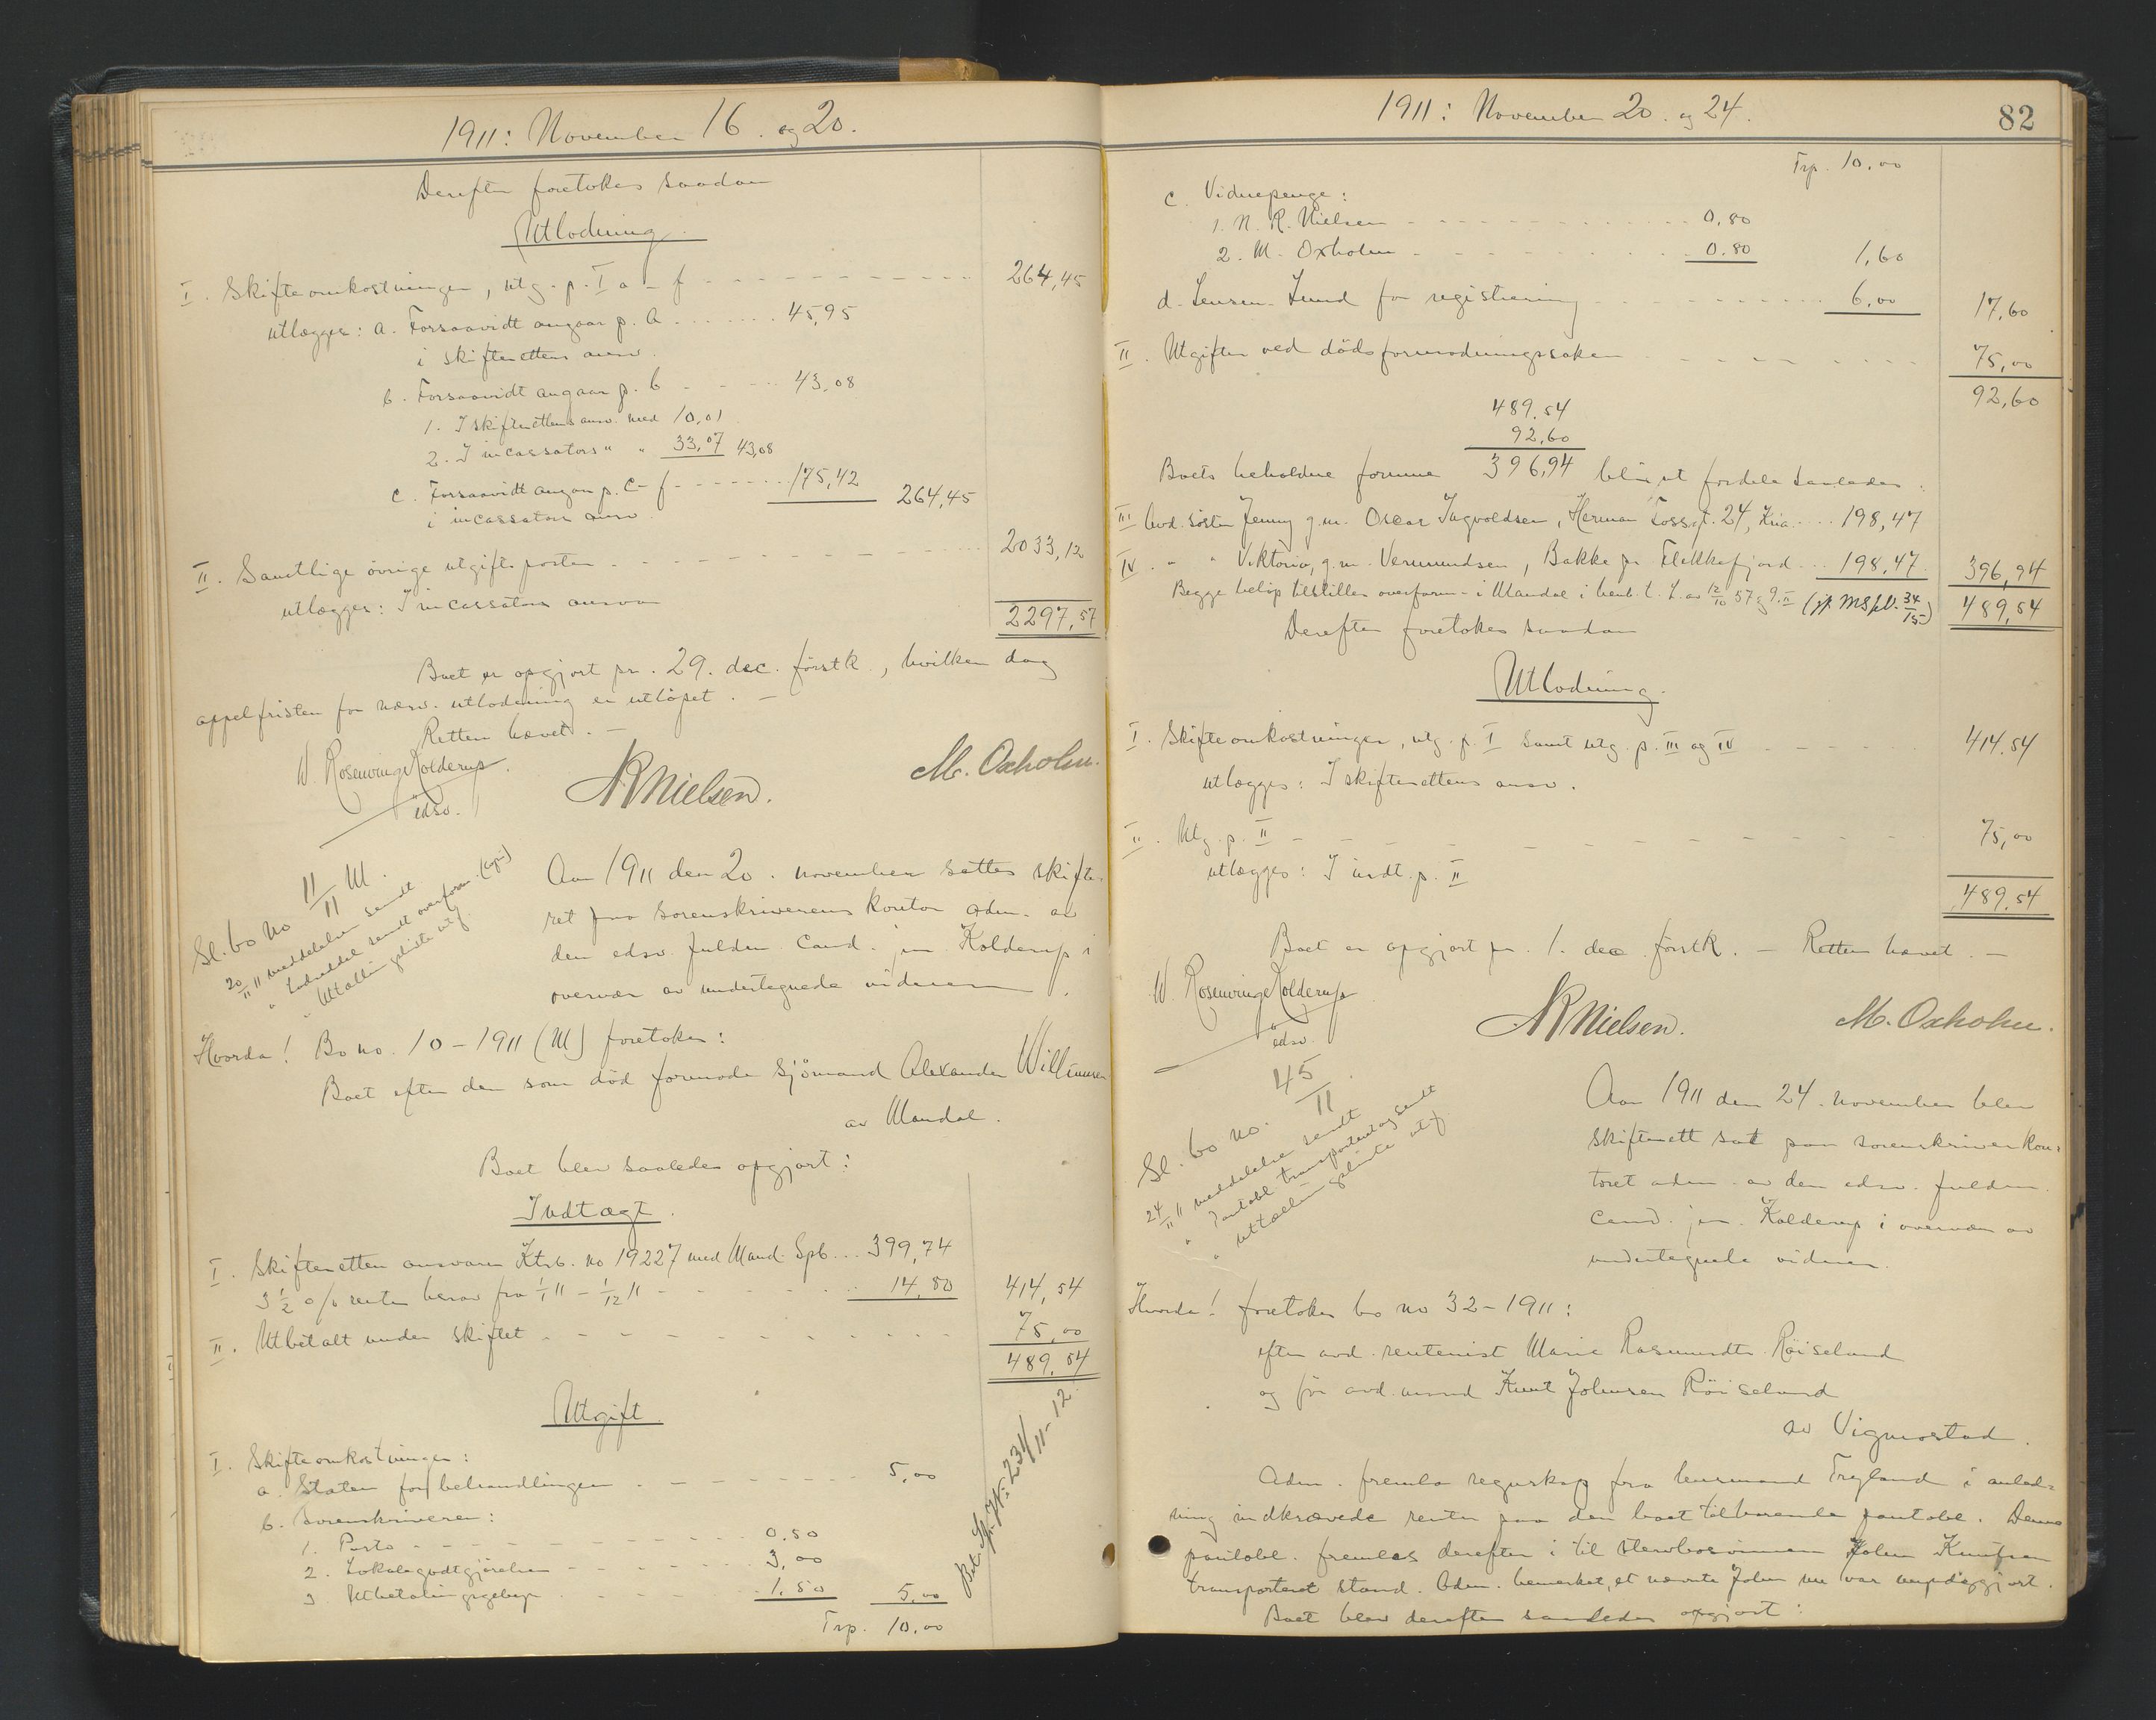 1911: November 16. og 20.
Derefter foretokes saadan
Utlodning.
I. Skifteomkostninger, utg. p. I a - f 264,45
utlægges: a. Forsaavidt angaar p. a 45,95
i skifterettens ansv.
b. Forsaavidt angaar p. b 43,08
1. I skifterettens ansv. med 10,01
2. I incassators " " 33,07 43,08
c. Forsaavidt angaar p. c - f 175,42 264,45
i incassators ansv.
II. Samtlige övrige utgiftsposter 2033,12
utlægges: I incassators ansvar
2297,57
Boet er opgjort pr. 29. dec. förstk., hvilken dag
appelfristen for nærv. utlodning er utløpet. —
Retten hævet. —
W Rosenvinge Kolderup.
edsv.
NR Nielsen.
M. Oxholm.
Sl. bo no 11/11 M.
20/11 11 meddelelse sendt
" Lodseddel sendt overform. (kopi)
" Uttællin gsliste utf.
Aar 1911 den 20. november sattes skifte-
ret paa Sorenskriverens kontor adm. av
den edsv. fuldm. cand. jur. Kolderup i
overvær av undertegnede vidner.
Hvorda! Bo no. 10 - 1911 (M) foretokes:
Boet efter den som död formode Sjömand Alexander Willumsen
av Mandal.
Boet blev saaledes opgjort:
Indtægt.
I. Skifteretten ansvarer Ktrb. no 19227 med Mand. Spb. 399,74
3 1/2 o/o renter herav fra 1/1 11 - 1/12 11 14,80 414,54
II. Utbetalt under skiftet 75,00
489,54
Utgift.
I. Skifteomkostninger:
a. Staten for behandlingen 5,00
b. Sorenskriveren:
1. Porto 0,50
2. Lokalegodtgjørelse 3,00
3. Utbetalingsgebyr 1,50 5,00
Trp. 10,00
1911: November 20. og 24.
82
Trp. 10,00
c. Vidnepenge:
1. N. R. Nielsen 0,80
2. M. Oxholm 0,80 1,60
d. Lensm. Lund for registrering 6,00 17,60
II. Utgifter ved dödsformodningssaken 75,00
92,60
489,54
92,60
Boets beholdne formue 396,94 blir at fordele saaledes:
III avd. søster Jenny g.m. Oscar Ingvoldsen, Herman Fossgt. 24, Kria. 198,47
IV. " " Viktoria, g.m. Vermundsen, Bakke pr. Flekkefjord 198,47 396,94
Begge beløp tilstilles overform. i Mandal i henh. t. L. av 12/10 57 § 9. II (jf. MSpD. 34/15) 489,54
Derefter foretokes saadan
Utlodning.
I. Skifteomkostninger, utg. p. I samt utg. p. III og IV 414,54
utlægges: I skifterettens ansv.
II. Utg. p. II 75,00
utlægges: I indt. p. II
489,54
Boet er opgjort pr. 1. dec. förstk. — Retten hævet. —
W Rosenvinge Kolderup
edsv.
NR Nielsen.
M. Oxholm.
Sl. bo no. 45/11.
24/11 11 meddelelse sendt
" Pantobl. transporteret og sendt
" uttællin gsliste utf.
Aar 1911 den 24. november blev
skifterett sat paa sorenskriverkon-
toret adm. av den edsv. fuldm.
cand. jur. Kolderup i overvær av
undertegnede vidner.
Hvorda! foretokes bo no 32 - 1911:
efter avd. rentenist Marie Rasmusdtr. Röiseland
og før avd. mand Knut Johnsen Röiseland
av Vigmostad.
Adm. fremla regnskap fra lensmand Trygland i anled-
ning indkrævede renter paa den boet tilhørende pantobl. Denne
pantobl. fremlaes derefter i til stervbosønnen John Knutsen
transporteret stand. Adm. bemerket, at nævnte John nu var
Boet blev derefter saaledes opgjort: